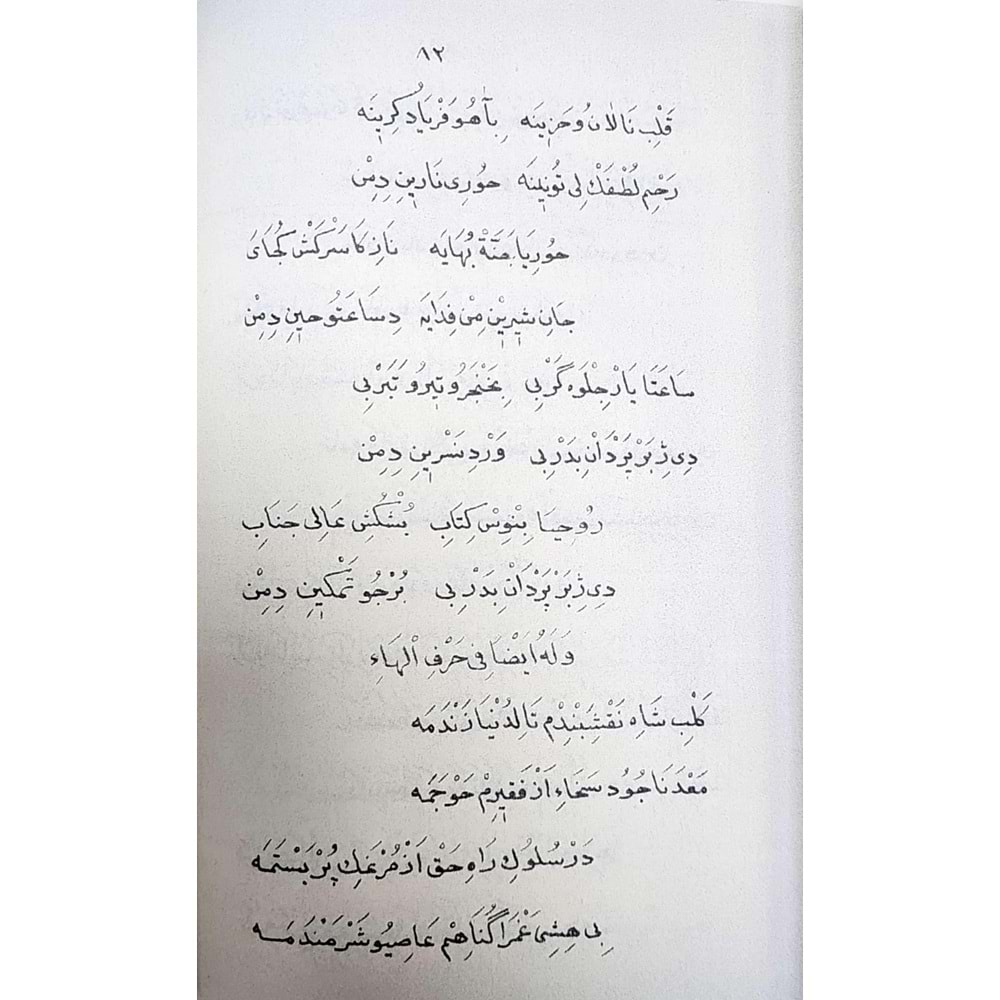 ٨٢
قَلْبِ نَالَانُ وحَزِينَه بِآهُو فَرْيَادُ كِرِينَه
رَحْمِ لُطْفَكْ لِی تُونِینَه حُورِی نَارِینِ دِمِنْ
حُورِیَا جَنَّةْ بُهَایَه نَازِكَا سَرْكَشْ كُجَایَ
جَانِ شِیرِینْ مِنْ فِدَایَه دِسَاعَتُو حِینِ دِمِنْ
سَاعَتَا یَارْ جِلْوَه گَرْ بِی بِخَنْجَرُو تِیرُو تَبَرْ بِی
دِی ژِبَرْ پَرْدَانْ بِدَرْ بِی وَرْدِ نَسْرِینِ دِمِنْ
رُوحِیَا بِنْوِسْ كِتَابِ بُشْكُشِ عَالِی جَنَابِ
دِی ژِبَرْ پَرْدَانْ بِدَرْ بِی بُرْجُو تَمْكِینِ دِمِنْ
وَلَهُ اَيْضًا فِی حَرْفِ الْهَاءِ
كَلْبِ شَاهِ نَقْشِبَنْدِمْ تَا لِدُنْیَا زَنْدَمَه
مَعْدَنَا جُودُ سَخَاءِ اَزْ فَقِیرِمْ حَوْجَمَه
دَرْ سُلُوكِ رَاهِ حَقْ اَزْ مُرْغَكِ پُرْ بَسْتَمَه
بِی هِشِی عَمْرَا گُنَاهِمْ عَاصِیُو شَرْمَنْدَمَه